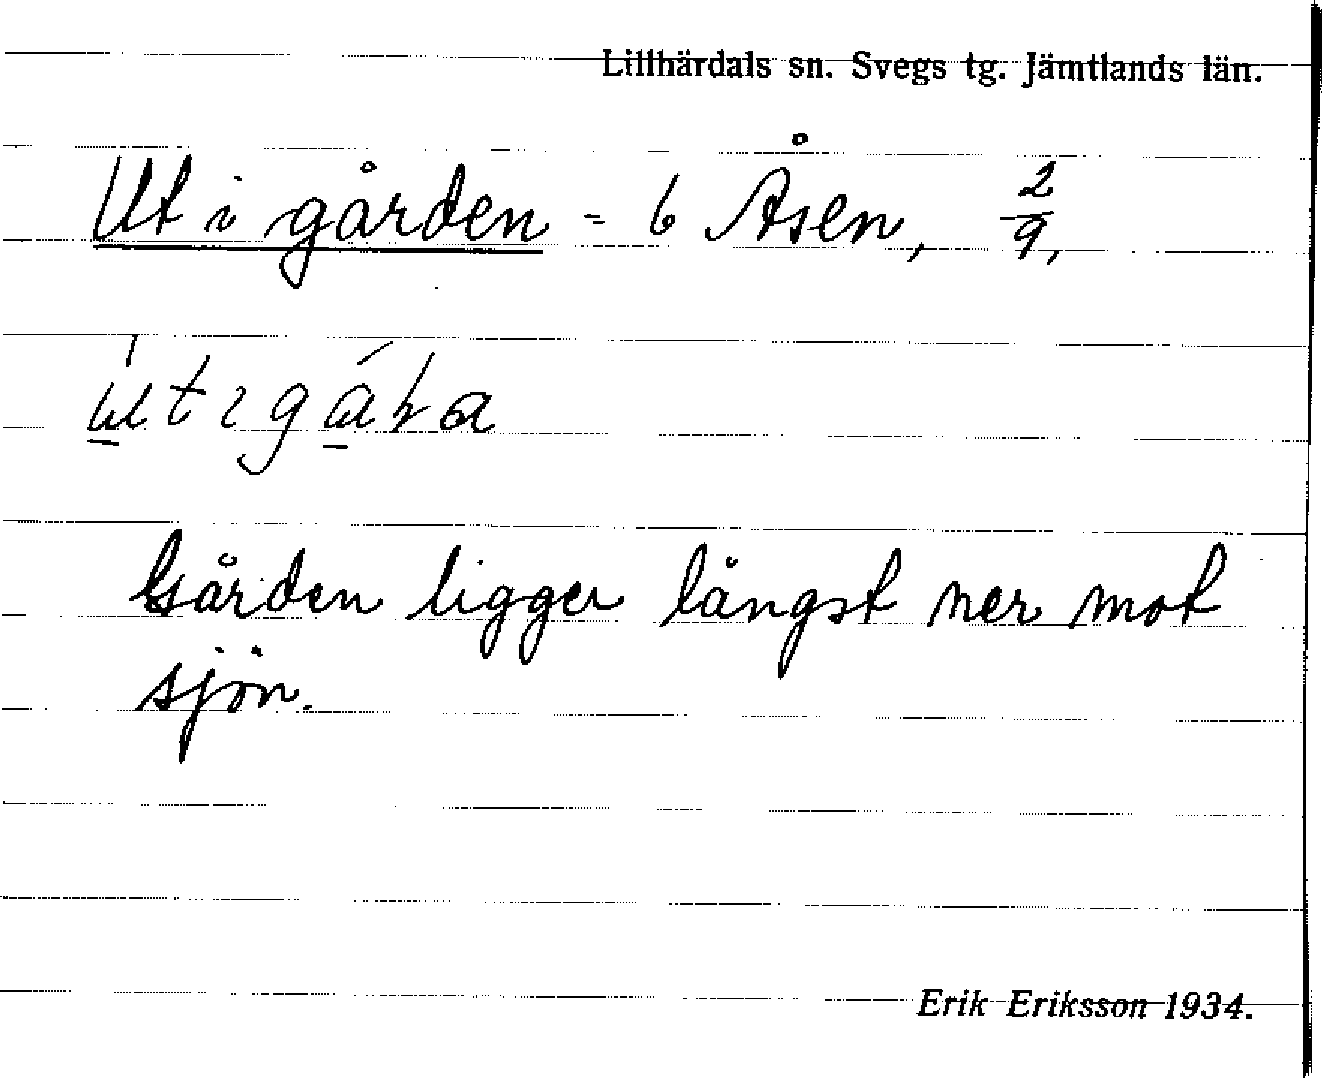 Lillhärdals sn. Svegs tg. Jämtlands län.
Ut i gården = 6 Åsen, 2/9,
Gården ligger längst ner mot
sjön.
Erik Eriksson 1934.